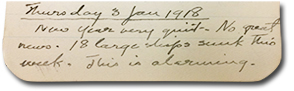 Thursday 3 Jan 1918
New Year very quit - No great
news. 18 large ships sunk this
week. This is alarming.